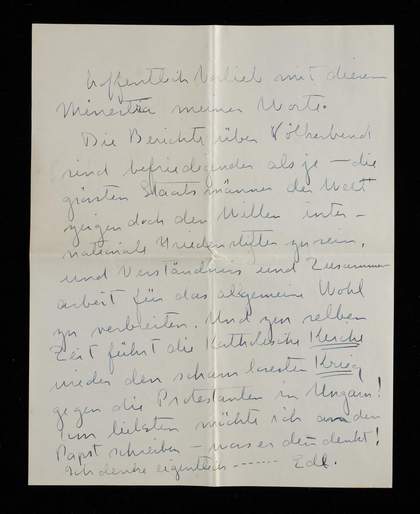 Hoffentlich Verlieb mit diesem
meiner Worte.
Die Berichte über Völkerbund
sind befriedigender als je – die
grössten Staatsmänner der Welt
zeigen doch den Willen inter-
nationale Friedenstifter zu sein,
und Verständnis und Zusammen
arbeit für das allgemeine Wohl
zu verbreiten. Und zur selben
Zeit führt die Katholische Kirche
wieder den schamlosesten Krieg
gegen die Protestanten in Ungarn!
Am liebsten möchte ich an den
Papst schreiben – was er denn denkt!
Ich denke eigentlich -------